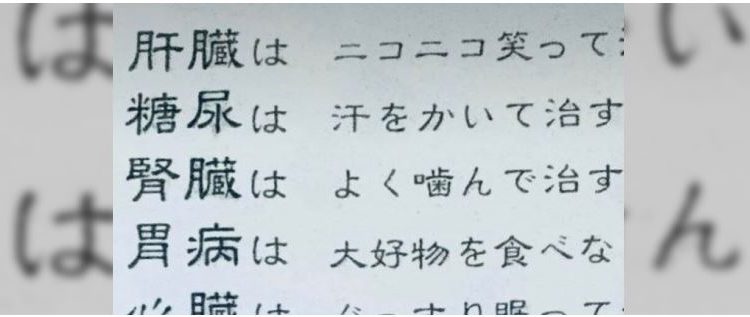 肝臓は ニコニコ笑って
糖尿は 汗をかいて治す
腎臓は よく噛んで治す
胃病は 大好物を食べな
心臓は ぐっすり眠って